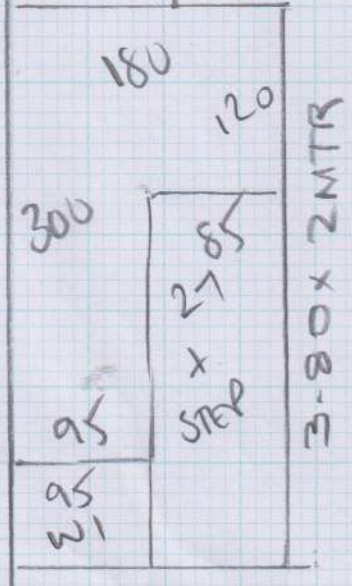 180
120
300
85
27
X
STEP
95
95
W1
3-80 X 2MTR